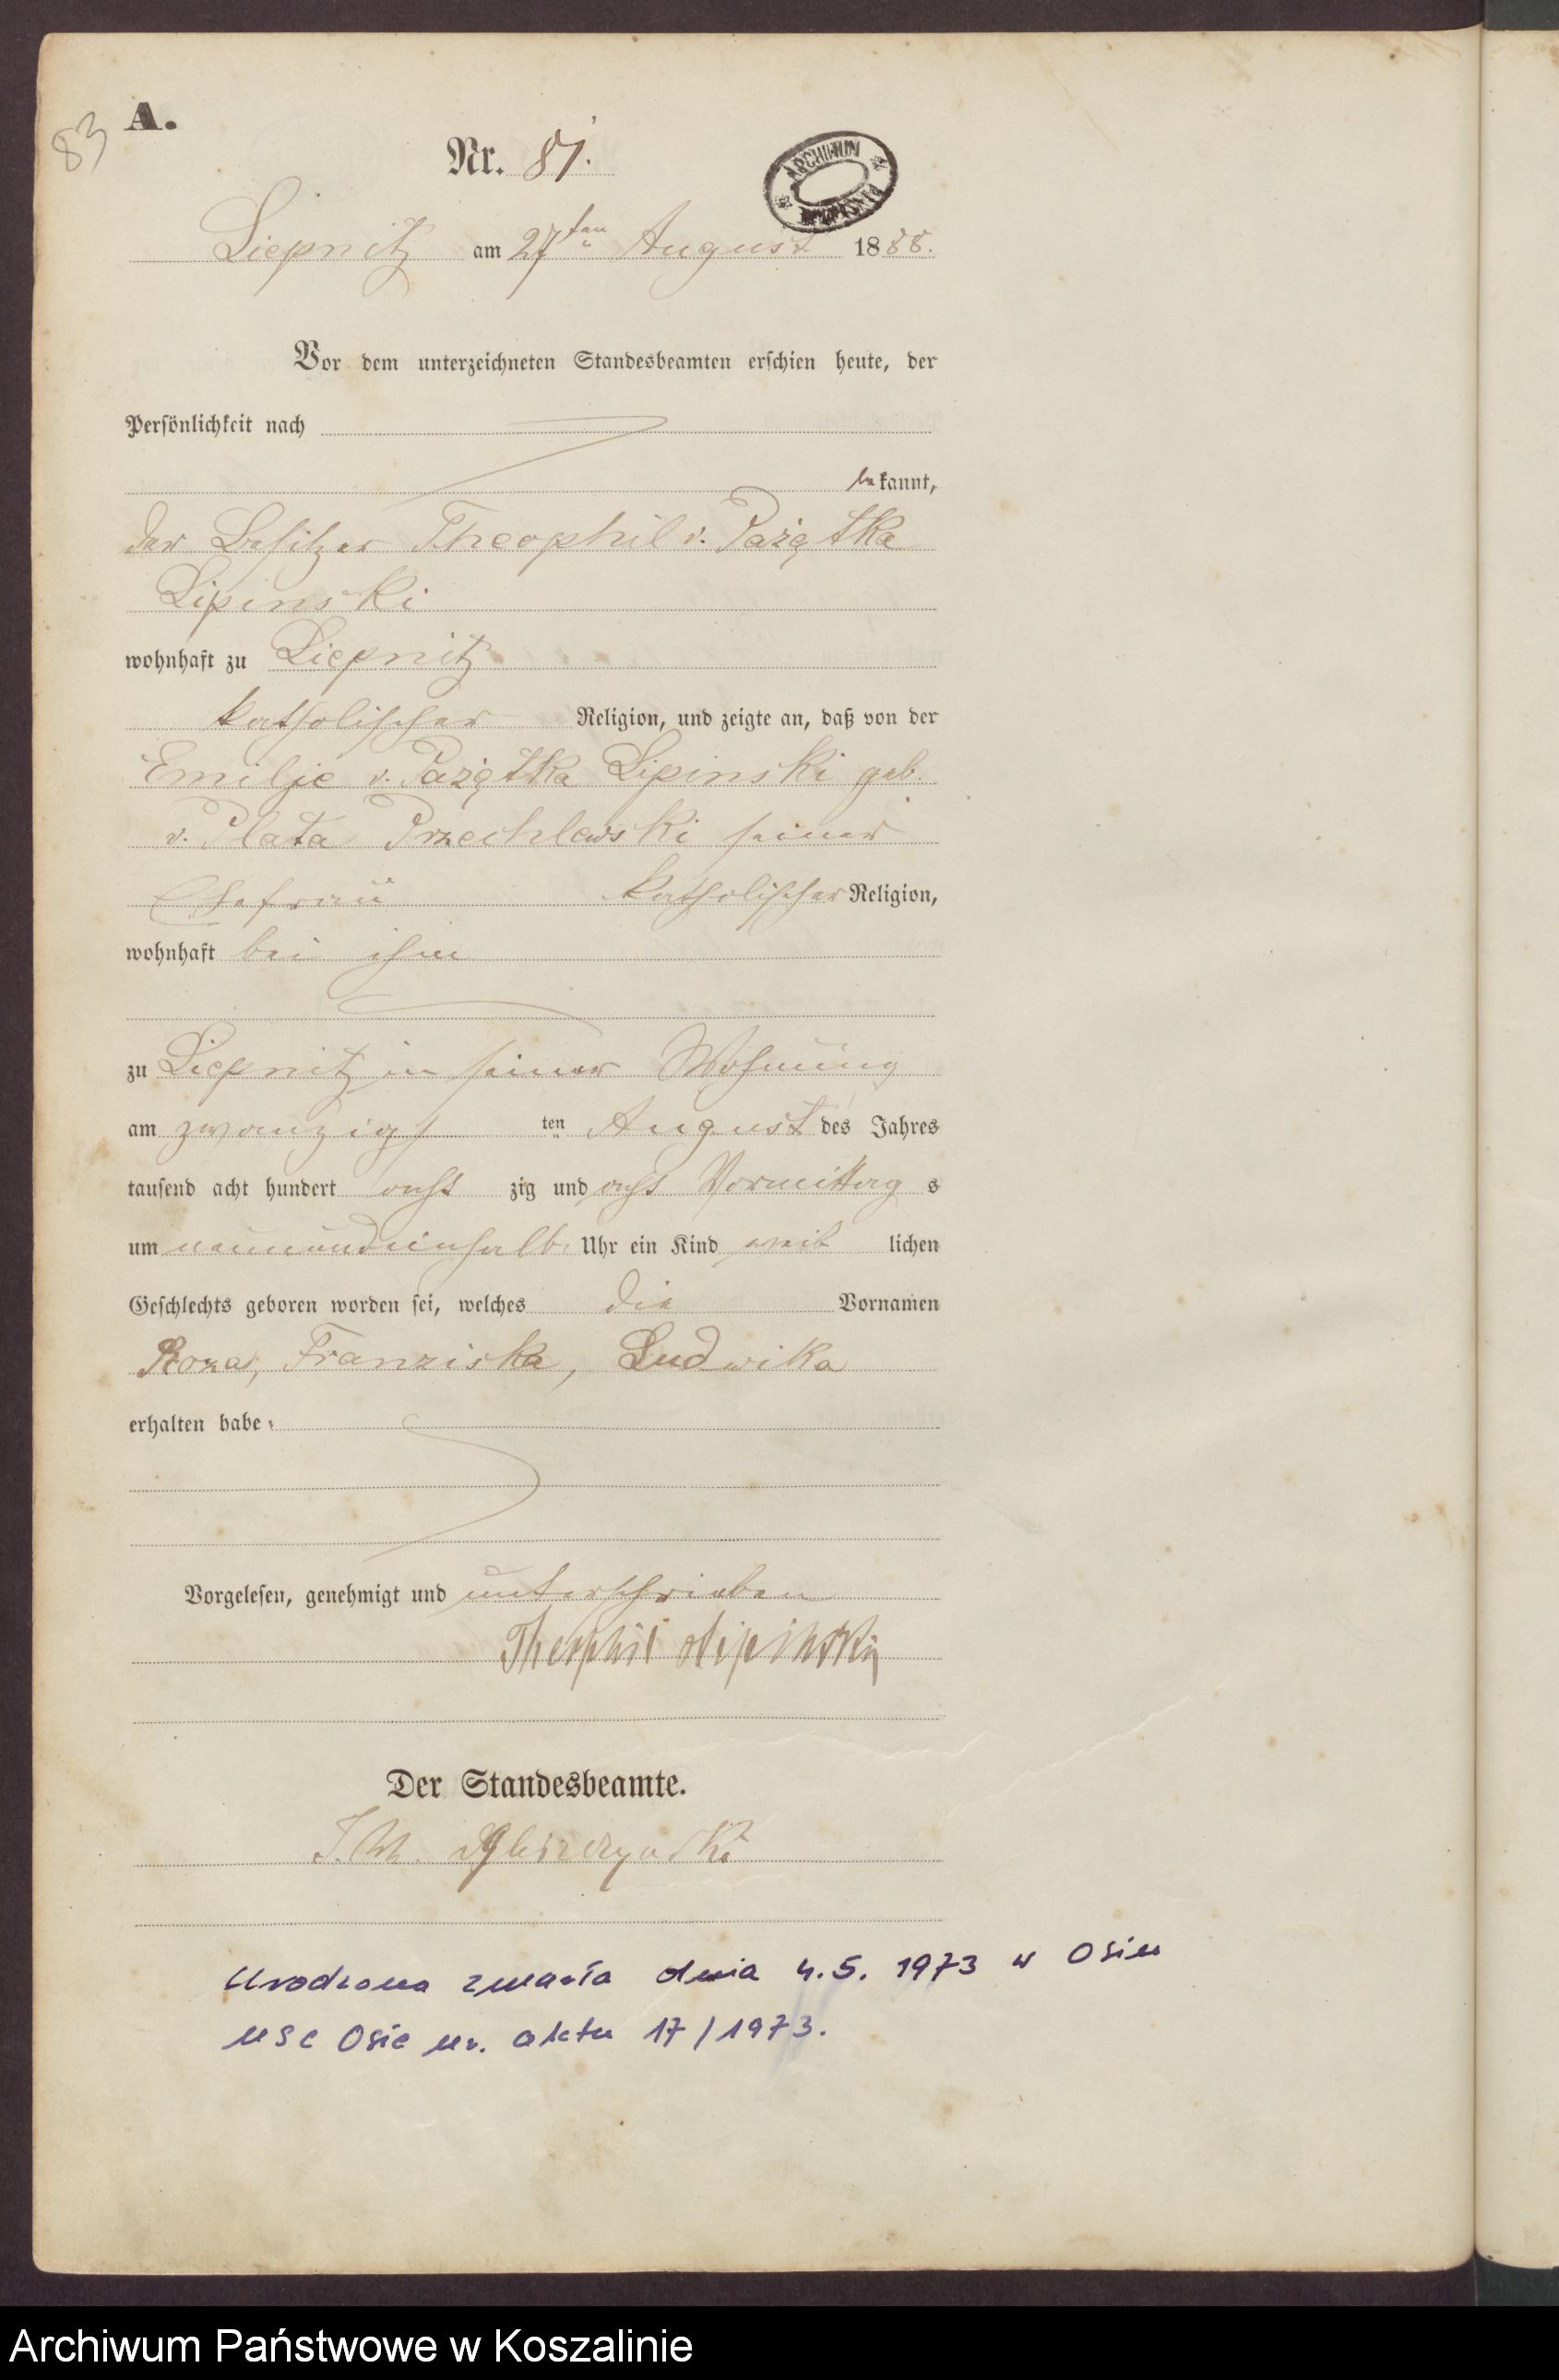 83
A.
Nr. 81.
ARCHIWUM
Liepnitz am 27ten August 1888.
Vor dem unterzeichneten Standesbeamten erschien heute, der
Persönlichkeit nach
bekannt,
der Besitzer Theophil v. Pażątka
Lipinski
wohnhaft zu Liepnitz
katholischer Religion, und zeigte an, daß von der
Emilje v. Pażątka Lipinski geb.
v. Plata Przechlewski seiner
Ehefrau katholischer Religion,
wohnhaft bei ihm
zu Liepnitz in seiner Wohnung
am zwanzigsten August des Jahres
tausend acht hundert achtzig und acht Vormittags
um neunundeinhalb Uhr ein Kind weiblichen
Geschlechts geboren worden sei, welches die Vornamen
Roza, Franziska, Ludwika
erhalten habe.
Vorgelesen, genehmigt und unterschrieben
Theophil Lipinski
Der Standesbeamte.
Urodzona zmarła dnia 4.5.1973 w Osiu
USC Osie nr. aktu 17/1973.
Archiwum Państwowe w Koszalinie